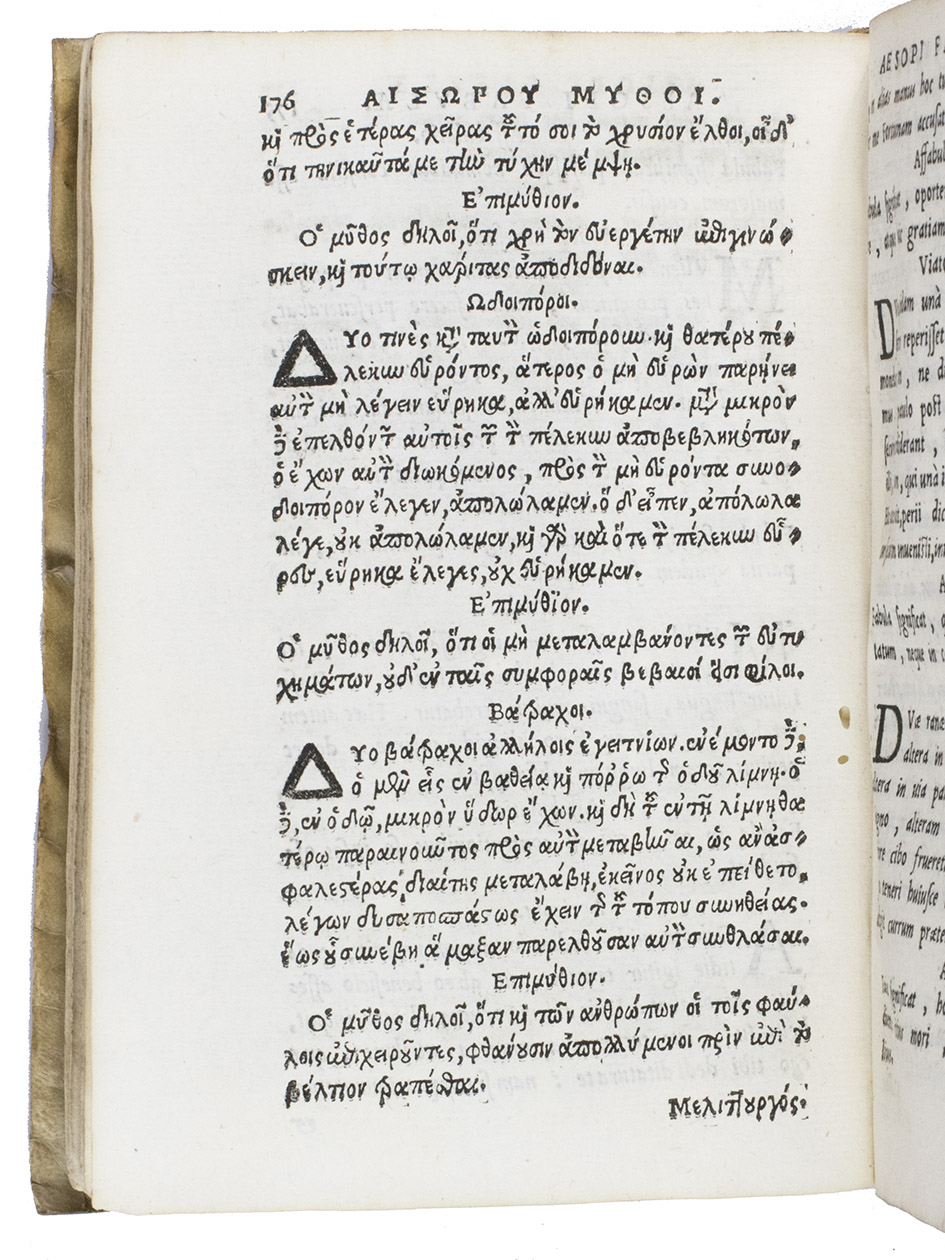 176 ΑΙΣΩΡΟΥ ΜΥΘΟΙ.
κỳ πρὸς ἑτέρας χεῖρας τό σοι χρυσίον ἔλθοι, οἶδ'
ὅτι τηνικαῦτά με τὴν τύχην μέμψῃ.
Ἐπιμύθιον.
Ὁ μῦθος δηλοῖ, ὅτι χρὴ τὸν εὐεργέτην ἐπιγινώ-
σκειν, καὶ τούτῳ χάριτας ἀποδιδόναι.
Ὡδοιπόροι.
ΔΥο τινὲς κατὰ ταυτὸν ὡδοιπόρουν. καὶ θατέρου πέ-
λεκυν εὑρόντος, ἅτερος ὁ μὴ εὑρὼν παρῄνει
αὐτὸν μὴ λέγειν εὕρηκα, ἀλλ' εὑρήκαμεν. μετὰ μικρὸν
δὲ ἐπελθόντων αὐτοῖς τῶν τὸν πέλεκυν ἀποβεβληκότων,
ὁ ἔχων αὐτὸν διωκόμενος, πρὸς τὸν μὴ εὑρόντα συνο-
δοιπόρον ἔλεγεν, ἀπολώλαμεν. ὁ δ' εἶπεν, ἀπόλωλα
λέγε, οὐκ ἀπολώλαμεν, καὶ γὰρ καὶ ὅτε τὸν πέλεκυν εὗ-
ρες, εὕρηκα ἔλεγες, οὐχ εὑρήκαμεν.
Ἐπιμύθιον.
Ὁ μῦθος δηλοῖ, ὅτι οἱ μὴ μεταλαμβάνοντες τῶν εὐτυ
χημάτων, οὐδ' ἐν ταῖς συμφοραῖς βέβαιοί εἰσι φίλοι.
Βάτραχοι.
ΔΥο βάτραχοι ἀλλήλοις ἐγειτνίων. ἐνέμοντο δὲ,
ὁ μὲν εἷς ἐν βαθείᾳ καὶ πόῤῥω τῆς ὁδοῦ λίμνῃ. ὁ
δὲ, ἐν ὁδῷ, μικρὸν ὕδωρ ἔχων. καὶ δὴ τοῦ ἐν τῇ λίμνῃ θα
τέρῳ παραινοῦντος πρὸς αὐτὸν μεταβῆναι, ὡς ἂν ἀσ-
φαλεστέρας διαίτης μεταλάβῃ, ἐκεῖνος οὐκ ἐπείθετο,
λέγων δυσαποσπάστως ἔχειν τῆς τοῦ τόπου συνηθείας.
ἕως οὗ συνέβη ἅμαξαν παρελθοῦσαν αὐτὸν συνθλάσαι.
Ἐπιμύθιον.
Ὁ μῦθος δηλοῖ, ὅτι καὶ τῶν ἀνθρώπων οἱ τοῖς φαύ-
λοις ἐπιχειροῦντες, φθάνουσιν ἀπολλύμενοι πρὶν ἐπὶ τὸ
βέλτιον τραπέσθαι.
Μελιτουργός.
AESOPI
alias manus hoc
me Fortunam accusat
Affabul
, oporte
gratiam
Viato
Duidam unà
reperisset
, ne d
paulo post
, qui unà i
perii dic
Fabula significat,
, neque in c
DVæ ranæ
altera in
in uia pa
, alteram
cibo frueret
teneri huiusce
currum præte
mori